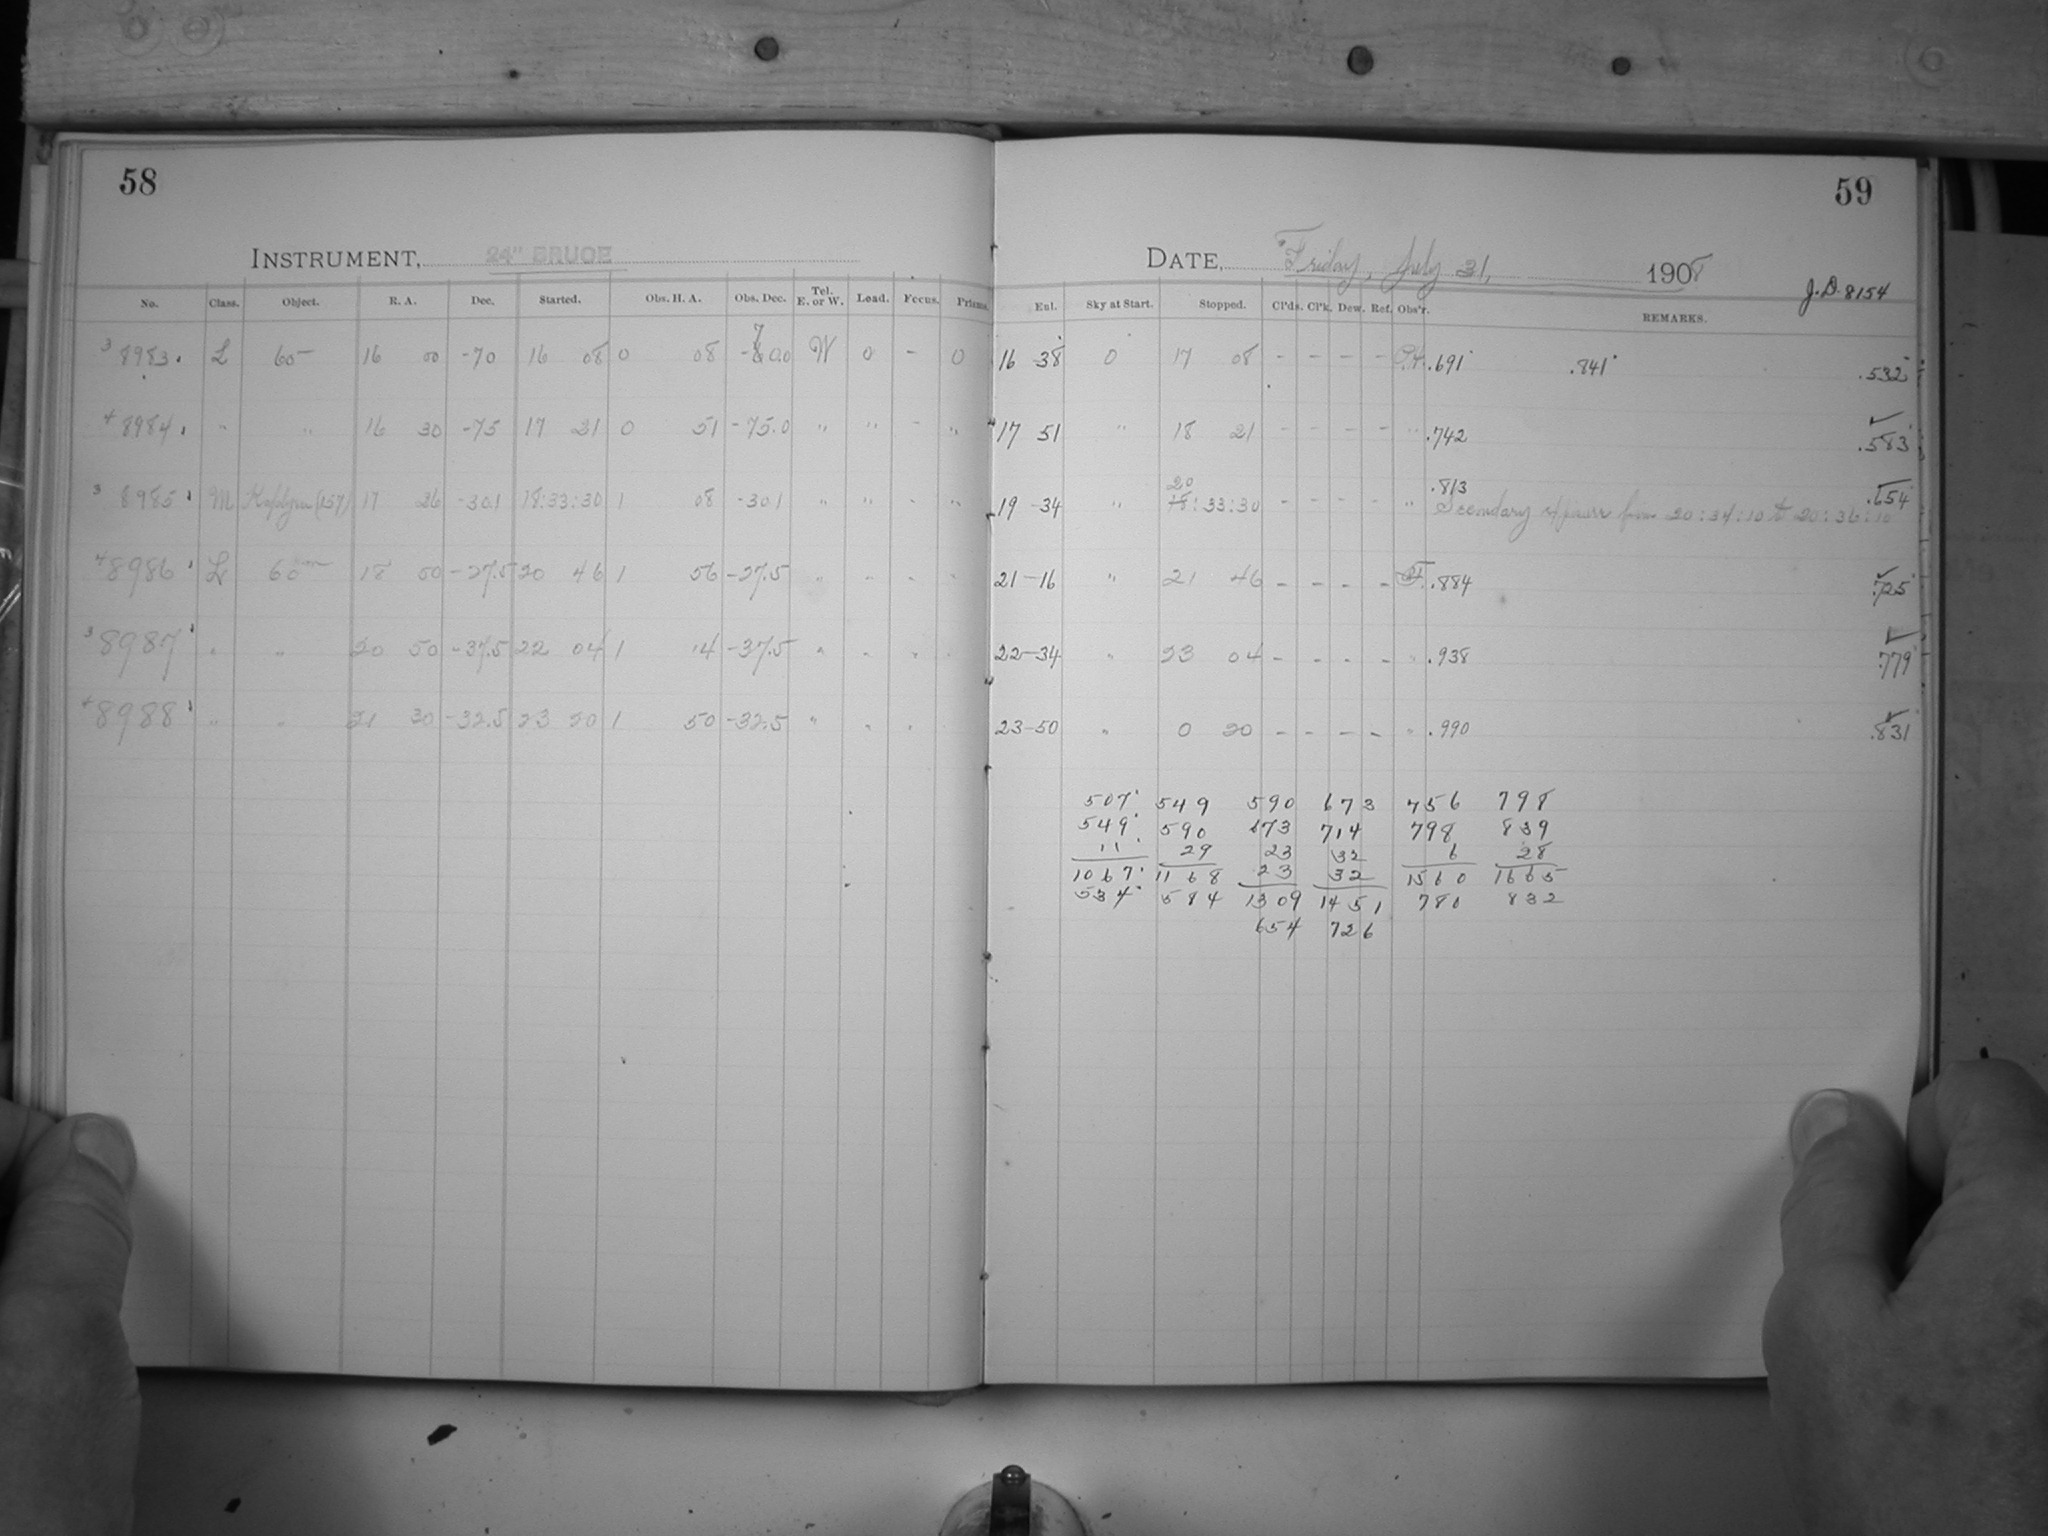 58
INSTRUMENT, 24" BRUCE
No. Class. Object. R. A. Dec. Started. Obs. H. A. Obs. Dec. Tel. E. or W. Load. Focus. Prisms.
3 8983. L 60 16 00 -70 16 08 0 08 -70.0 W 0 - 0
4 8984. " " 16 30 -75 17 21 0 51 -75.0 " " - "
3 8985 M (157) 17 26 -30.1 18:33:30 1 08 -30.1 " " - "
4 8986 L 60 18 50 -27.5 20 46 1 56 -27.5 " " " "
3 8987 " " 20 50 -37.5 22 04 1 14 -37.5 " " " "
4 8988 " " 21 30 -32.5 23 20 1 50 -32.5 " " "
59
DATE, Friday, July 31, 1908
J.D. 8154
Enl. Sky at Start. Stopped. Cl'ds. Cl'k. Dew. Ref. Obs'r. REMARKS.
16 38 0 17 08 - - - - .691 .841 .532
17 51 " 18 21 - - - - " .742 .583
19-34 " 20 18:33:30 - - - - " .813 .654
Secondary from 20:34:10 to 20:36:10
21-16 " 21 46 - - - - .884 .725
22-34 " 23 04 - - - - " .938 .779
23-50 " 0 20 - - - - " .990 .831
507 549 590 673 756 798
549 590 673 714 798 839
11 29 23 32 6 28
1067 1168 23 32 1560 1665
534 584 1309 1451 780 832
654 726